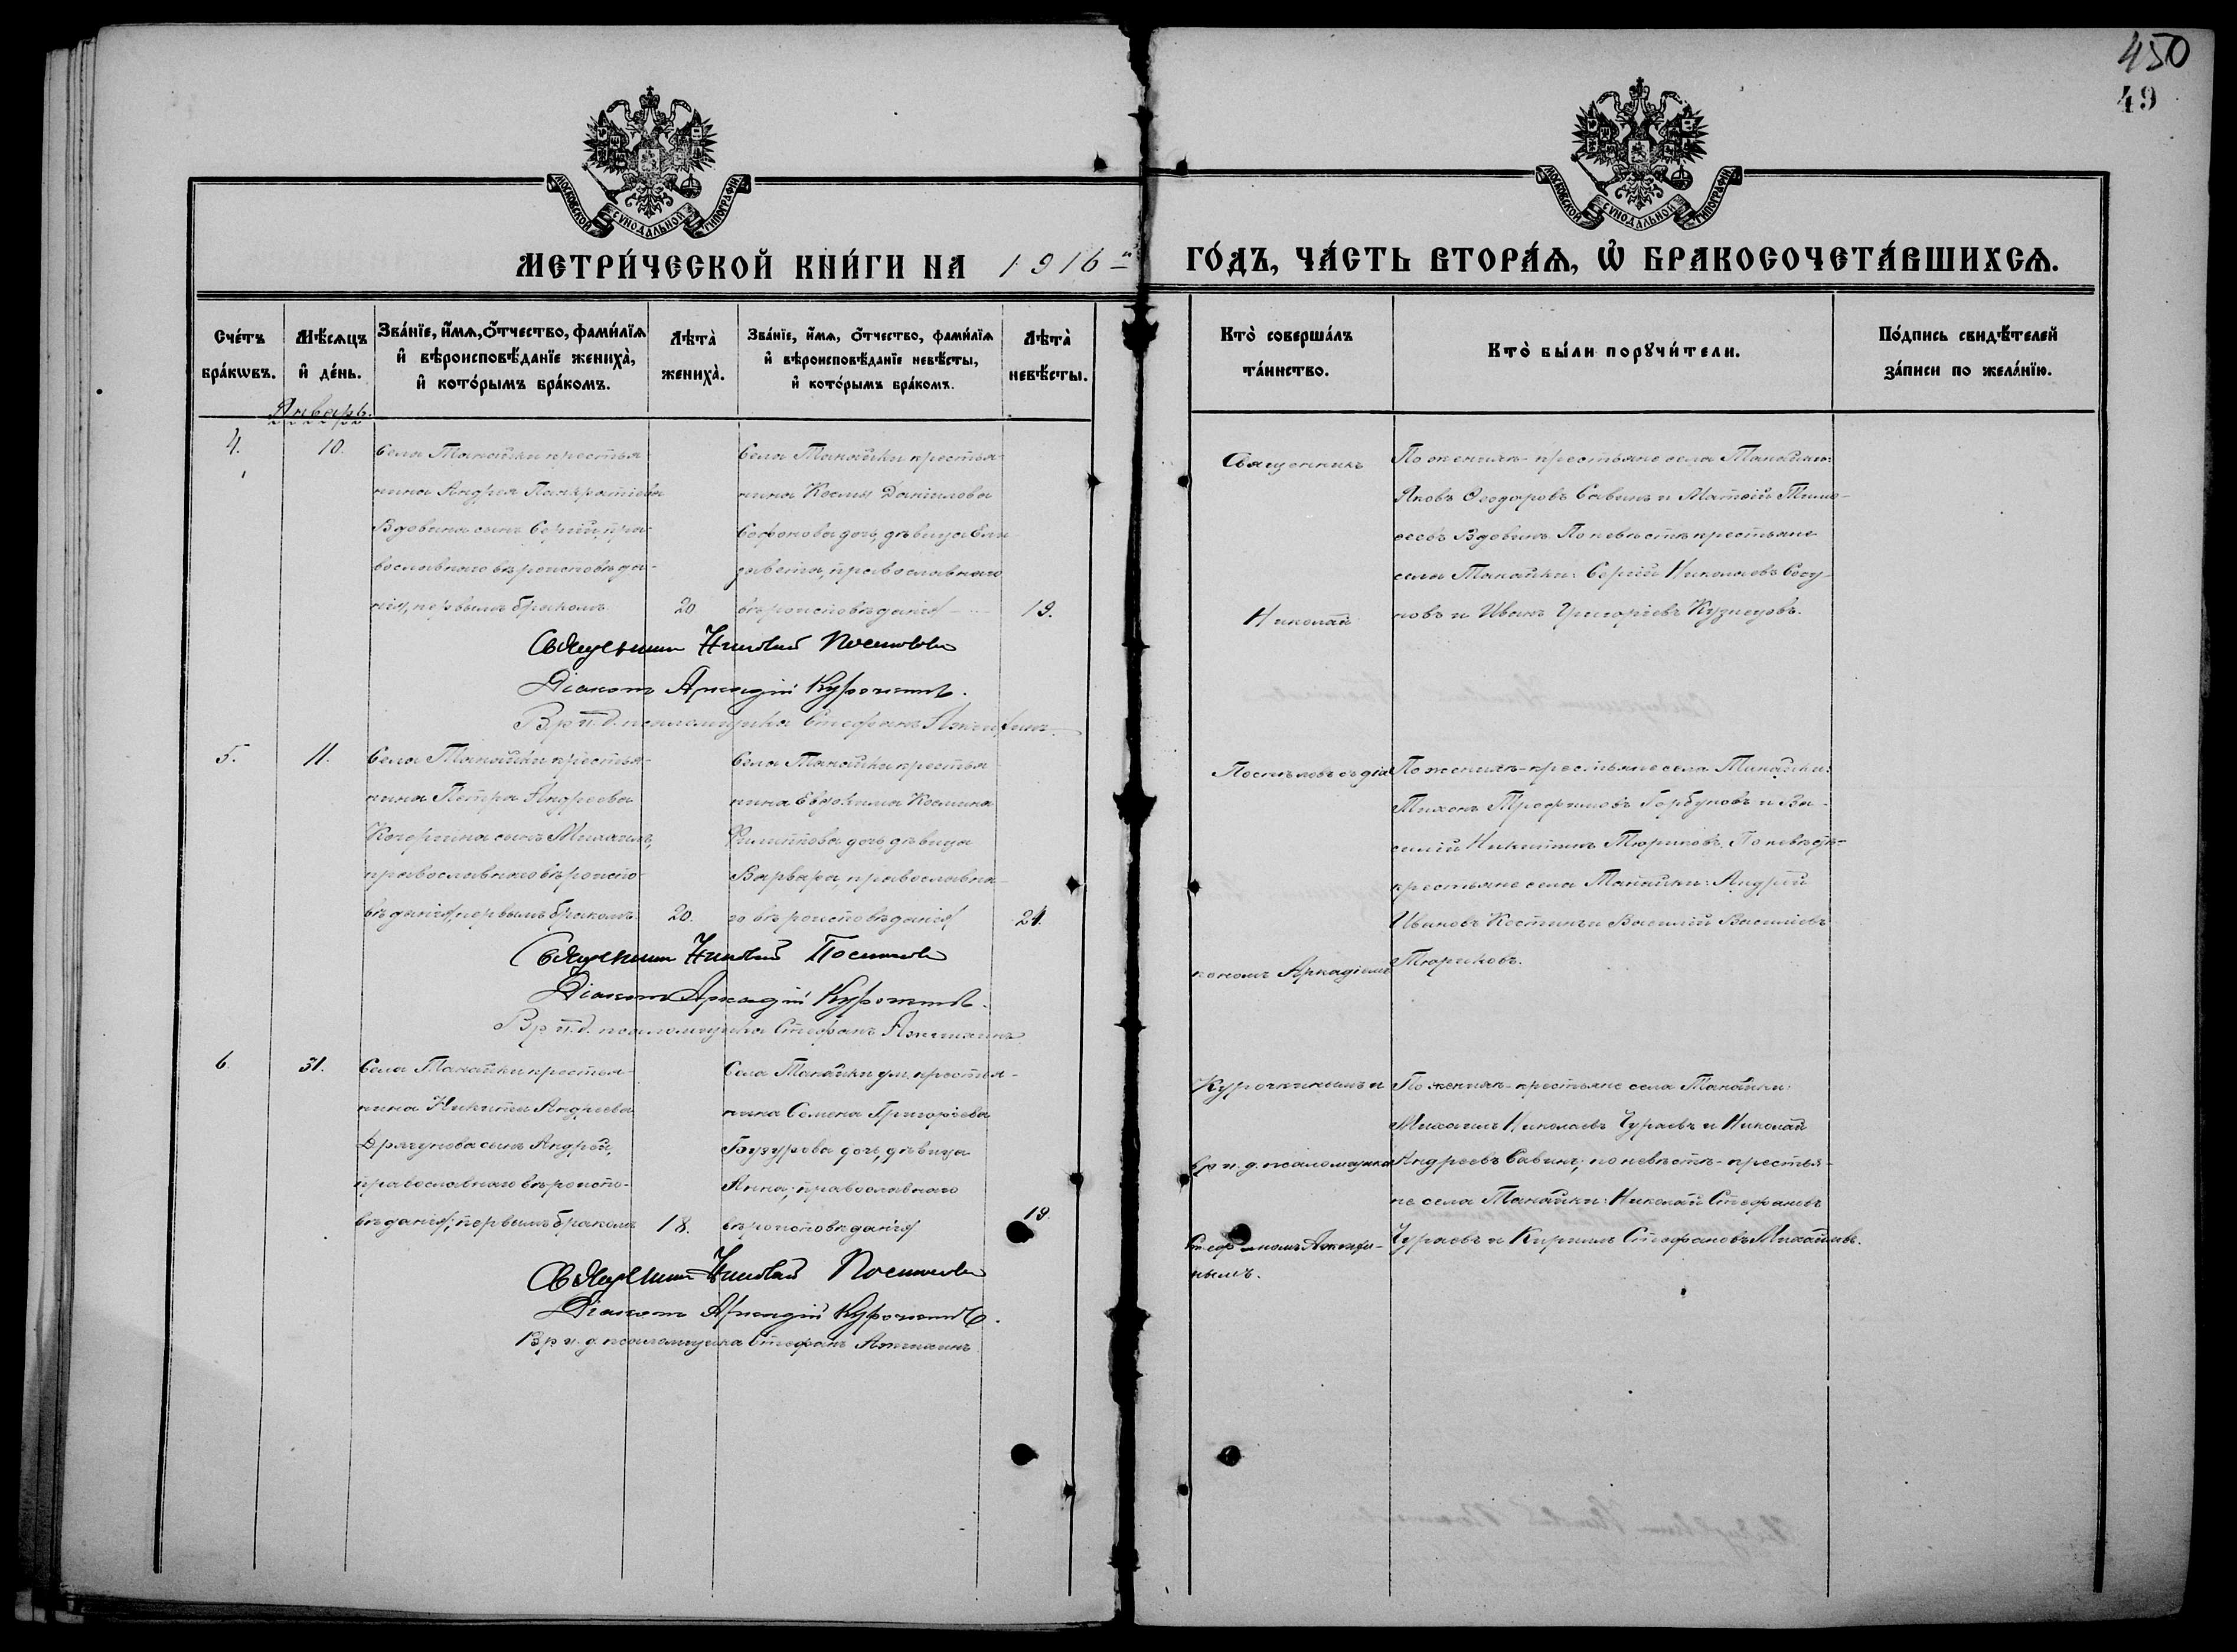 450
49
МОСКОВСКОЙ СѴНОДАЛЬНОЙ ТИПОГРАФІИ
МОСКОВСКОЙ СѴНОДАЛЬНОЙ ТИПОГРАФІИ
МЕТРИ́ЧЕСКОЙ КНИ́ГИ НА 1916й ГО́ДЪ, ЧА́СТЬ ВТОРА́Ѧ, Ѽ БРАКОСОЧЕТА́ВШИХСѦ.
Сче́тъ бра́кѡвъ.
Мѣ́сѧцъ и҆ де́нь.
Зва́нїе, и҆́мѧ, ѻ҆́тчество, фами́лїѧ и҆ вѣроисповѣ́данїе жениха̀, и҆ кото́рымъ бра́комъ.
Лѣта̀ жениха̀.
Зва́нїе, и҆́мѧ, ѻ҆́тчество, фами́лїѧ и҆ вѣроисповѣ́данїе невѣ́сты, и҆ кото́рымъ бра́комъ.
Лѣта̀ невѣ́сты.
Кто̀ соверша́лъ та́инство.
Кто̀ бы́ли порꙋчи́тели.
По́дпись свидѣ́телей за́писи по жела́нїю.
Январь.
4.
10.
Села Танайки крестья-
нина Андрея Панкратіева
Вдовина сынъ Сергій, пра-
вославнаго вѣроисповѣда-
нія, первымъ бракомъ
20
Села Танайки крестья-
нина Космы Даніилова
дочь, дѣвица Ели-
завета, православнаго
вѣроисповѣданія
19.
Священникъ
Николай
По женихѣ - крестьяне села Танайки:
Яковъ Ѳеодоровъ Савинъ и Матѳій Тимо-
ѳеевъ Вдовинъ. По невѣстѣ крестьяне
села Танайки: Сергій Николаевъ
и Иванъ Григоріевъ Кузнецовъ.
Священникъ Николай Поспѣловъ
Діаконъ Аркадій Курочкинъ.
Вр. и. д. псаломщика Стефанъ
5.
11.
Села Танайки крестья-
нина Петра Андреева
Кочергина сынъ Михаилъ,
православнаго вѣроиспо-
вѣданія, первымъ бракомъ.
20.
Села Танайки крестья
нина Евѳимия Космина
Филиппова дочь, дѣвица
Варвара, православна-
го вѣроисповѣданія
21.
Поспѣловъ съ діа
кономъ Аркадіемъ
По женихѣ - крестьяне села Танайки:
Тихонъ Трофимовъ Горбуновъ и Ва-
силій Никитинъ Тюриковъ. По невѣстѣ-
крестьяне села Танайки: Андрей
Ивановъ Костинъ и Василій Василіевъ
Тюриковъ.
Священникъ Николай Поспѣловъ
Діаконъ Аркадій Курочкинъ.
Вр. и. д. псаломщика Стефанъ
6.
31.
Села Танайки крестья-
нина Никиты Андреева
Дрягунова сынъ Андрей,
православнаго вѣроиспо-
вѣданія; первымъ бракомъ
18.
Села Танайки ум. крестья-
нина Семена Григоріева
дочь, дѣвица
Анна, православнаго
вѣроисповѣданія
19.
Курочкинымъ и
вр. и. д. псаломщика
Стефаномъ
нымъ.
По женихѣ - крестьяне села Танайки:
Михаилъ Николаевъ Чураевъ и Николай
Андреевъ Савинъ; по невѣстѣ - крестья-
не села Танайки: Николай Стефановъ
Чураевъ и Кириллъ Стефановъ Михайловъ.
Священникъ Николай Поспѣловъ
Діаконъ Аркадій Курочкинъ.
Вр. и. д. псаломщика Стефанъ